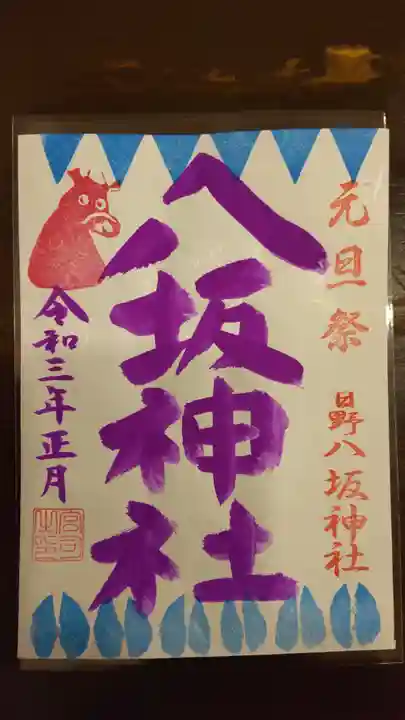 元旦祭 日野八坂神社
八坂神社
令和三年正月
宮司之印